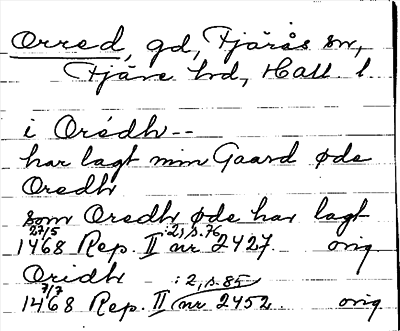 Orred, gd, Fjärås sn,
Fjäre hd, Hall. l.
i Orédh--
har lagt min Gaard øde
Oredh
som Oredh øde har lagt
27/5 :2,s.76
1468 Rep. II nr 2427. orig
Oridh :2,s.85
7/7
1468 Rep. II nr 2452. orig